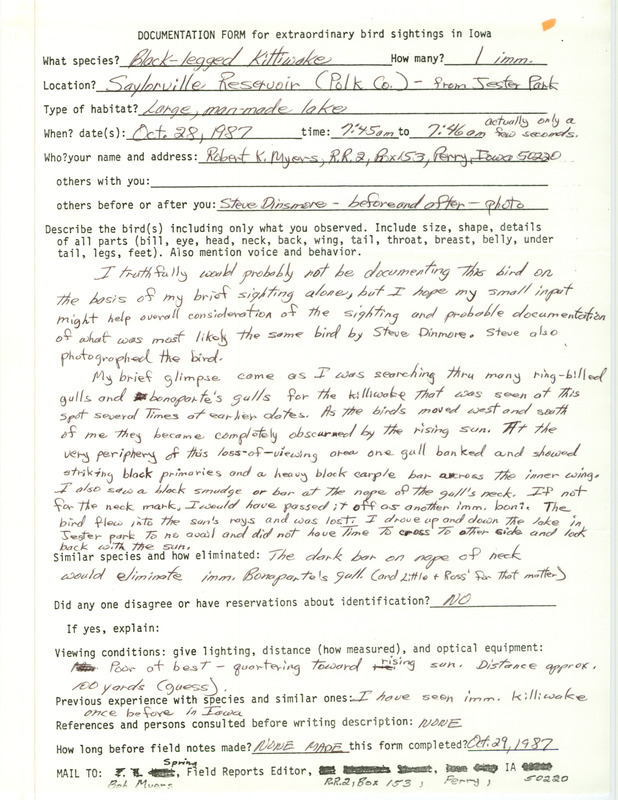 DOCUMENTATION FORM for extraordinary bird sightings in Iowa
What species? Black-legged Kittiwake How many? 1 imm.
Location? Saylorville Reservoir (Polk Co.) - from Jester Park
Type of habitat? Large, man-made lake
When? date(s): Oct. 28, 1987 time: 7:45am to 7:46am actually only a few seconds.
Who? your name and address: Robert K. Myers, R.R.2, Box 153, Perry, Iowa 50220
others with you:
others before or after you: Steve Dinsmore - before and after - photo
Describe the bird(s) including only what you observed. Include size, shape, details
of all parts (bill, eye, head, neck, back, wing, tail, throat, breast, belly, under
tail, legs, feet). Also mention voice and behavior.
I truthfully would probably not be documenting this bird on
the basis of my brief sighting alone, but I hope my small input
might help overall consideration of the sighting and probable documentation
of what was most likely the same bird by Steve Dinmore. Steve also
photographed the bird.
My brief glimpse came as I was searching thru many ring-billed
gulls and bonaparte's gulls for the killiwake that was seen at this
spot several times at earlier dates. As the birds moved west and south
of me they became completely obscurned by the rising sun. At the
very periphery of this loss-of-viewing area one gull banked and showed
striking black primaries and a heavy black carple bar across the inner wing.
I also saw a black smudge or bar at the nape of the gull's neck. If not
for the neck mark, I would have passed it off as another imm. boni. The
bird flew into the sun's rays and was lost. I drove up and down the lake in
Jester park to no avail and did not have time to cross to other side and look
back with the sun.
Similar species and how eliminated: The dark bar on nape of neck
would eliminate imm. Bonaparte's gull (and Little + Ross' for that matter)
Did any one disagree or have reservations about identification? NO
If yes, explain:
Viewing conditions: give lighting, distance (how measured), and optical equipment:
Poor at best - quartering toward rising sun. Distance approx.
100 yards (guess).
Previous experience with species and similar ones: I have seen imm. killiwake
once before in Iowa
References and persons consulted before writing description: NONE
How long before field notes made? NONE MADE this form completed? Oct. 29, 1987
Spring
MAIL TO: Field Reports Editor, IA
Bob Myers R.R.2, Box 153, Perry, 50220